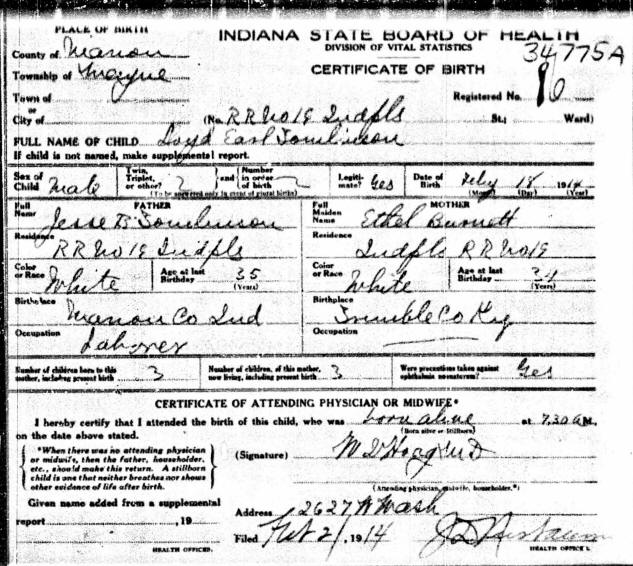 PLACE OF BIRTH
INDIANA STATE BOARD OF HEALTH
DIVISION OF VITAL STATISTICS
34775A
County of Marion
Township of Wayne
CERTIFICATE OF BIRTH
Town of
or
City of
Registered No.
(No. RR No 19 Indpls St.; Ward)
FULL NAME OF CHILD Loyd Earl Tomlinson
If child is not named, make supplemental report.
Sex of Child Male
Twin, Triplet, or other?
and
Number in order of birth
(To be answered only in event of plural births)
Legiti-mate? Yes
Date of Birth Feby 18 1914
(Month) (Day) (Year)
FATHER
Full Name Jesse B Tomlinson
MOTHER
Full Maiden Name Ethel Burnett
Residence RR No 19 Indpls
Residence Indpls RR No 19
Color or Race White
Age at last Birthday 35 (Years)
Color or Race White
Age at last Birthday (Years)
Birthplace Marion Co Ind
Birthplace Trimble Co Ky
Occupation Laborer
Occupation
Number of children born to this mother, including present birth 3
Number of children, of this mother, now living, including present birth 3
Were precautions taken against ophthalmia neonatorum? Yes
CERTIFICATE OF ATTENDING PHYSICIAN OR MIDWIFE*
I hereby certify that I attended the birth of this child, who was born alive at 7.30 AM.
(Born alive or Stillborn)
on the date above stated.
*When there was no attending physician
or midwife, then the father, householder,
etc., should make this return. A stillborn
child is one that neither breathes nor shows
other evidence of life after birth.
(Signature)
(Attending physician, midwife, householder.*)
Given name added from a supplemental
report , 19
HEALTH OFFICER.
Address 2627 W Wash
Filed Feb 21, 1914
HEALTH OFFICER.